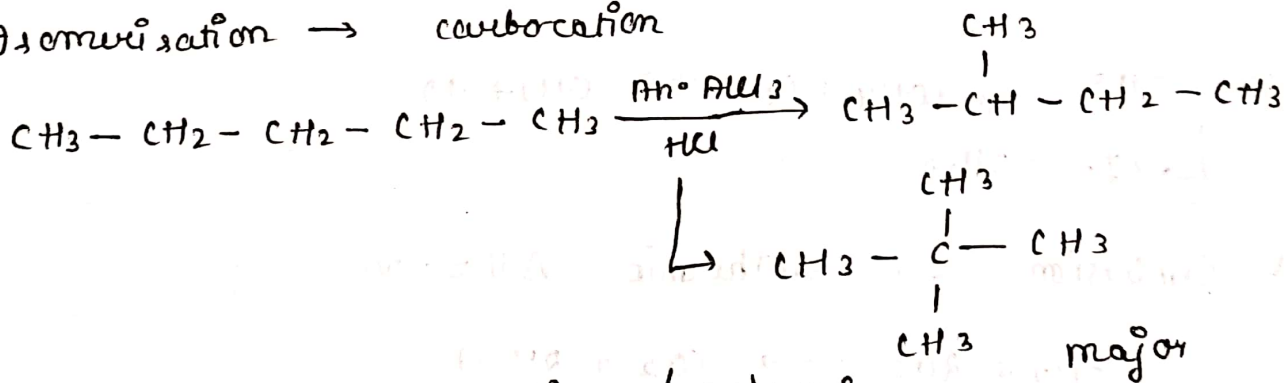 Isomerisation → carbocation
CH3
|
CH3 — CH2 — CH2 — CH2 — CH3 An• AlCl3 → CH3 — CH — CH2 — CH3
HCl
CH3
|
CH3 — C — CH3
|
CH3 major